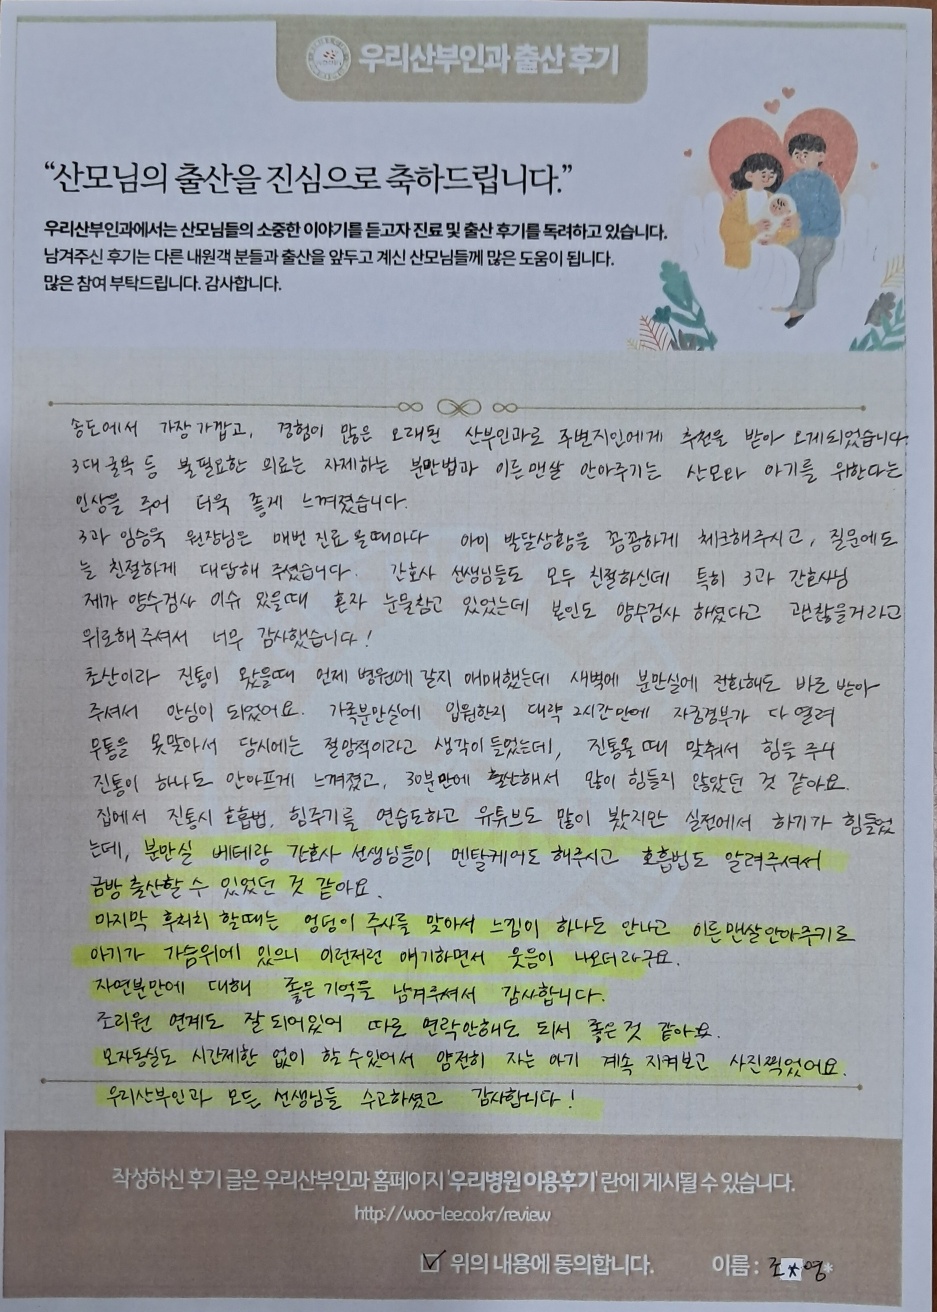 우리산부인과 출산 후기
“산모님의 출산을 진심으로 축하드립니다.”
우리산부인과에서는 산모님들의 소중한 이야기를 듣고자 진료 및 출산 후기를 독려하고 있습니다.
남겨주신 후기는 다른 내원객 분들과 출산을 앞두고 계신 산모님들께 많은 도움이 됩니다.
많은 참여 부탁드립니다. 감사합니다.
송도에서 가장 가깝고, 경험이 많은 오래된 산부인과로 주변지인에게 추천을 받아 오게되었습니다.
3대 굴욕 등 불필요한 의료는 자제하는 분만법과 이른맨살 안아주기는 산모와 아기를 위한다는
인상을 주어 더욱 좋게 느껴졌습니다.
3과 임승욱 원장님은 매번 진료 올때마다 아이 발달상황을 꼼꼼하게 체크해주시고, 질문에도
늘 친절하게 대답해 주셨습니다. 간호사 선생님들도 모두 친절하신데 특히 3과 간호사님
제가 양수검사 이슈 있을때 혼자 눈물참고 있었는데 본인도 양수검사 하셨다고 괜찮을거라고
위로해주셔서 너무 감사했습니다!
초산이라 진통이 왔을때 언제 병원에 갈지 애매했는데 새벽에 분만실에 전화해도 바로 받아
주셔서 안심이 되었어요. 가족분만실에 입원한지 대략 2시간만에 자궁경부가 다 열려
무통을 못맞아서 당시에는 절망적이라고 생각이 들었는데, 진통올 때 맞춰서 힘을 주니
진통이 하나도 안아프게 느껴졌고, 30분만에 출산해서 많이 힘들지 않았던 것 같아요.
집에서 진통시 호흡법, 힘주기를 연습도하고 유튜브도 많이 봤지만 실전에서 하기가 힘들었
는데, 분만실 베테랑 간호사 선생님들이 멘탈케어도 해주시고 호흡법도 알려주셔서
금방 출산할 수 있었던 것 같아요.
마지막 후처치 할때는 엉덩이 주사를 맞아서 느낌이 하나도 안나고 이른맨살안아주기로
아기가 가슴위에 있으니 이런저런 얘기하면서 웃음이 나오더라구요.
자연분만에 대해 좋은 기억을 남겨주셔서 감사합니다.
조리원 연계도 잘 되어있어 따로 연락안해도 되서 좋은것 같아요.
모자동실도 시간제한 없이 할 수있어서 얌전히 자는 아기 계속 지켜보고 사진찍었어요.
우리산부인과 모든 선생님들 수고하셨고 감사합니다!
작성하신 후기 글은 우리산부인과 홈페이지 '우리병원 이용후기' 란에 게시될 수 있습니다.
http://woo-lee.co.kr/review
위의 내용에 동의합니다. 이름 : 조*영*